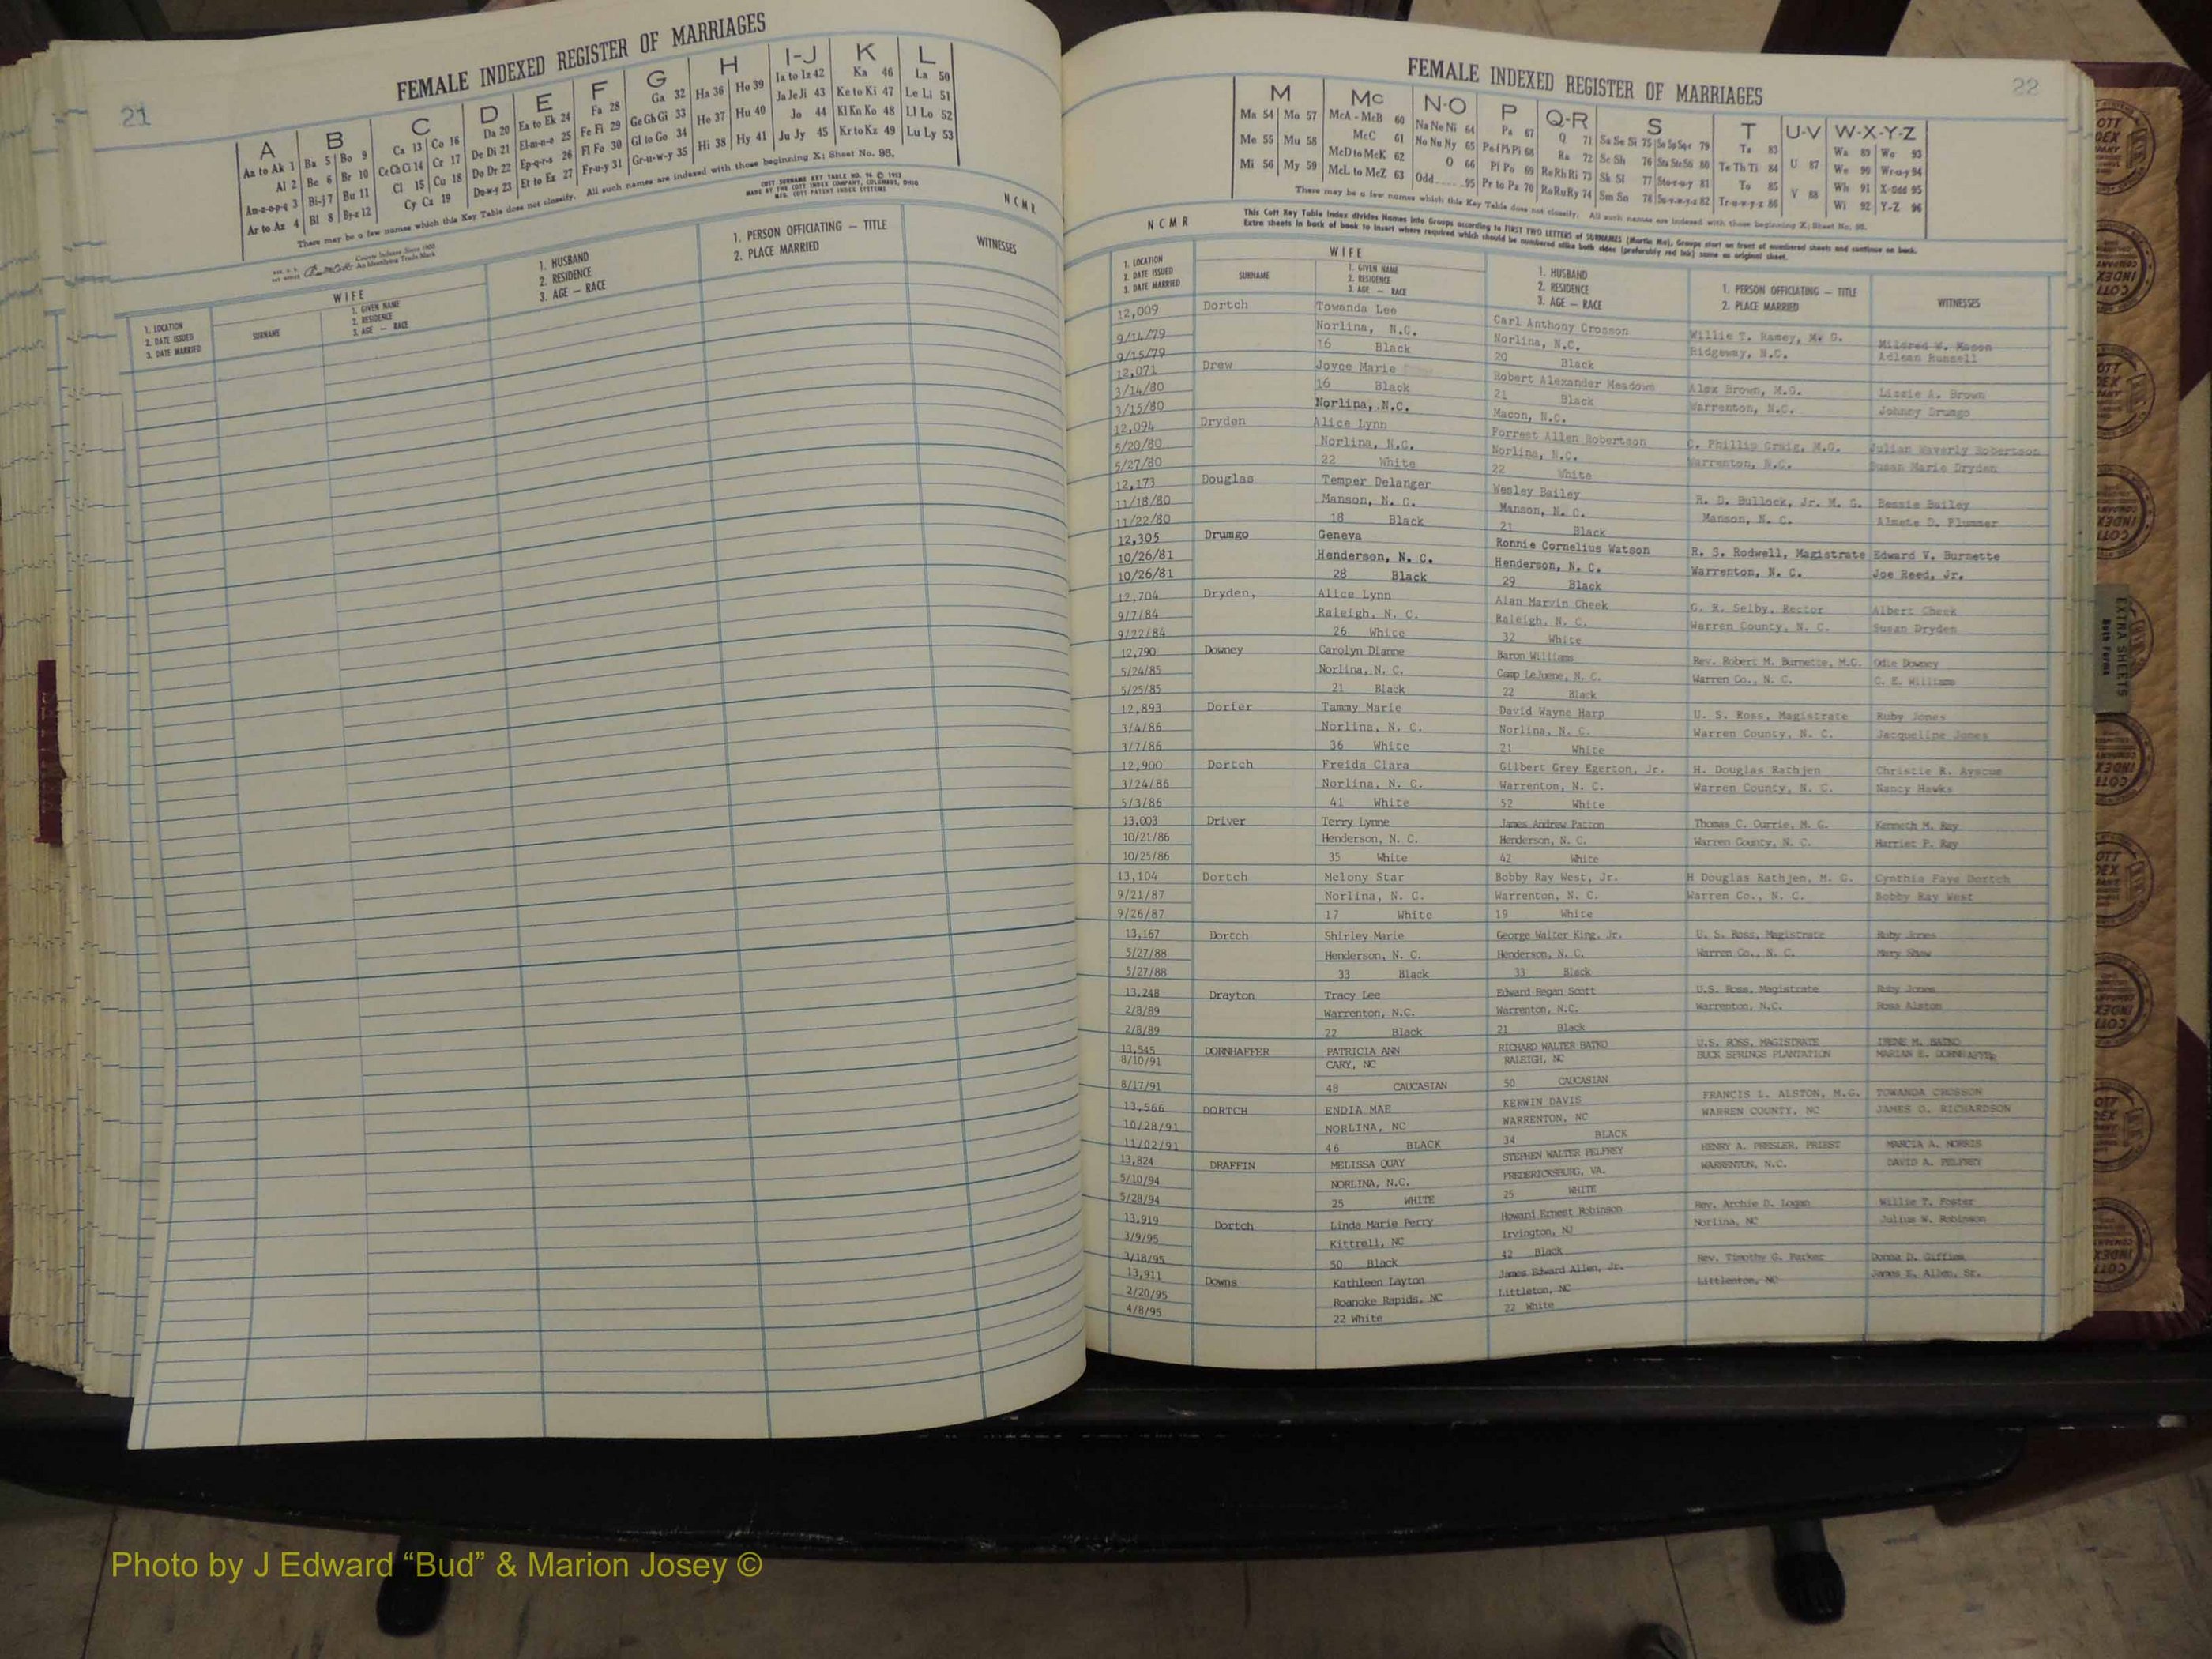 FEMALE INDEXED REGISTER OF MARRIAGES
21
A B C D E F G H I-J K L
Aa to Ak 1 Ba 5 Bo 9 Ca 13 Co 16 Da 20 Ea to Ek 24 Fa 28 Ga 32 Ha 36 Ho 39 Ia to Iz 42 Ka 46 La 50
Al 2 Be 6 Br 10 Ce Ch Ci 14 Cr 17 De Di 21 El-m-n-o 25 Fe Fi 29 Ge Gh Gi 33 He 37 Hu 40 Ja Je Ji 43 Ke to Ki 47 Le Li 51
An-o-p-q 3 Bi-j 7 Bu 11 Cl 15 Cu 18 Do Dr 22 Ep-q-r-s 26 Fl Fo 30 Gl to Go 34 Hi 38 Hy 41 Jo 44 Kl Kn Ko 48 Ll Lo 52
Ar to Az 4 Bl 8 By-z 12 Cy Cz 19 Du-w-y 23 Et to Ez 27 Fr-u-y 31 Gr-u-w-y 35 Ju Jy 45 Kr to Kz 49 Lu Ly 53
There may be a few names which this Key Table does not classify. All such names are indexed with those beginning X; Sheet No. 95.
COTT SURNAME KEY TABLE NO. 96 © 1953
MADE BY THE COTT INDEX COMPANY, COLUMBUS, OHIO
MFG. COTT PATENT INDEX SYSTEMS
NCMR
County Indexes Since 1888
An Identifying Trade Mark
1. LOCATION
2. DATE ISSUED
3. DATE MARRIED
WIFE
SURNAME
1. GIVEN NAME
2. RESIDENCE
3. AGE — RACE
1. HUSBAND
2. RESIDENCE
3. AGE — RACE
1. PERSON OFFICIATING — TITLE
2. PLACE MARRIED
WITNESSES
FEMALE INDEXED REGISTER OF MARRIAGES
22
M Mc N-O P Q-R S T U-V W-X-Y-Z
Ma 54 Mo 57 McA - McB 60 Na Ne Ni 64 Pa 67 Q 71 Sa Se Si 75 So Sp Sq-r 79 Ta 83 Wa 89 Wo 93
Me 55 Mu 58 McC 61 No Nu Ny 65 Pe-f Ph Pi 68 Ra 72 Sc Sh 76 Sta Ste Sti 80 Te Th Ti 84 U 87 We 90 Wr-u-y 94
Mi 56 My 59 McD to McK 62 O 66 Pl Po 69 Re Rh Ri 73 Sk Sl 77 Sto-r-u-y 81 To 85 Wh 91 X-Odd 95
McL to McZ 63 Odd 95 Pr to Pz 70 Ro Ru Ry 74 Sm Sn 78 Su-v-w-y-z 82 Tr-u-w-y-z 86 V 88 Wi 92 Y-Z 96
There may be a few names which this Key Table does not classify. All such names are indexed with those beginning X; Sheet No. 95.
NCMR
This Cott Key Table Index divides Names into Groups according to FIRST TWO LETTERS of SURNAMES (Martin Ma), Groups start on front of numbered sheets and continue on back.
Extra sheets in back of book to insert where required which should be numbered alike both sides (preferably red ink) same as original sheet.
1. LOCATION
2. DATE ISSUED
3. DATE MARRIED
WIFE
SURNAME
1. GIVEN NAME
2. RESIDENCE
3. AGE — RACE
1. HUSBAND
2. RESIDENCE
3. AGE — RACE
1. PERSON OFFICIATING — TITLE
2. PLACE MARRIED
WITNESSES
12,009 Dortch Towanda Lee Carl Anthony Crosson Willie T. Ramey, M. G. Mildred W. Mason
9/14/79 Norlina, N.C. Norlina, N.C. Ridgeway, N.C. Adlean Russell
9/15/79 16 Black 20 Black
12,071 Drew Joyce Marie Robert Alexander Meadows Alex Brown, M.G. Lizzie A. Brown
3/14/80 16 Black 21 Black Warrenton, N.C. Johnny Drumgo
3/15/80 Norlina, N.C. Macon, N.C.
12,094 Dryden Alice Lynn Forrest Allen Robertson C. Phillip Craig, M.G. Julian Waverly Robertson
5/20/80 Norlina, N.C. Norlina, N.C. Warrenton, N.C. Susan Marie Dryden
5/27/80 22 White 22 White
12,173 Douglas Temper Delanger Wesley Bailey R. D. Bullock, Jr. M. G. Bessie Bailey
11/18/80 Manson, N. C. Manson, N. C. Manson, N. C. Almete D. Plummer
11/22/80 18 Black 21 Black
12,305 Drumgo Geneva Ronnie Cornelius Watson R. S. Rodwell, Magistrate Edward V. Burnette
10/26/81 Henderson, N. C. Henderson, N. C. Warrenton, N. C. Joe Reed, Jr.
10/26/81 28 Black 29 Black
12,704 Dryden, Alice Lynn Alan Marvin Cheek G. R. Selby, Rector Albert Cheek
9/7/84 Raleigh, N. C. Raleigh, N. C. Warren County, N. C. Susan Dryden
9/22/84 26 White 32 White
12,790 Downey Carolyn Dianne Baron Williams Rev. Robert M. Burnette, M.G. Odie Downey
5/24/85 Norlina, N. C. Camp LeJuene, N. C. Warren Co., N. C. C. E. Williams
5/25/85 21 Black 22 Black
12,893 Dorfer Tammy Marie David Wayne Harp U. S. Ross, Magistrate Ruby Jones
3/4/86 Norlina, N. C. Norlina, N. C. Warren County, N. C. Jacqueline Jones
3/7/86 36 White 21 White
12,900 Dortch Freida Clara Gilbert Grey Egerton, Jr. H. Douglas Rathjen Christie R. Ayscue
3/24/86 Norlina, N. C. Warrenton, N. C. Warren County, N. C. Nancy Hawks
5/3/86 41 White 52 White
13,003 Driver Terry Lynne James Andrew Patton Thomas C. Currie, M. G. Kenneth M. Ray
10/21/86 Henderson, N. C. Henderson, N. C. Warren County, N. C. Harriet P. Ray
10/25/86 35 White 42 White
13,104 Dortch Melony Star Bobby Ray West, Jr. H Douglas Rathjen, M. G. Cynthia Faye Dortch
9/21/87 Norlina, N. C. Warrenton, N. C. Warren Co., N. C. Bobby Ray West
9/26/87 17 White 19 White
13,167 Dortch Shirley Marie George Walter King, Jr. U. S. Ross, Magistrate Ruby Jones
5/27/88 Henderson, N. C. Henderson, N. C. Warren Co., N. C. Mary Shaw
5/27/88 33 Black 33 Black
13,248 Drayton Tracy Lee Edward Regan Scott U.S. Ross, Magistrate Ruby Jones
2/8/89 Warrenton, N.C. Warrenton, N.C. Warrenton, N.C. Rosa Alston
2/8/89 22 Black 21 Black
13,545 DORNHAFFER PATRICIA ANN RICHARD WALTER BATKO U.S. ROSS, MAGISTRATE IRENE M. BATKO
8/10/91 CARY, NC RALEIGH, NC BUCK SPRINGS PLANTATION MARIAN E. DORNHAFFER
8/17/91 48 CAUCASIAN 50 CAUCASIAN
13,566 DORTCH ENDIA MAE KERWIN DAVIS FRANCIS L. ALSTON, M.G. TOWANDA CROSSON
10/28/91 NORLINA, NC WARRENTON, NC WARREN COUNTY, NC JAMES O. RICHARDSON
11/02/91 46 BLACK 34 BLACK
13,824 DRAFFIN MELISSA QUAY STEPHEN WALTER PELFREY HENRY A. PRESLER, PRIEST MARCIA A. NORRIS
5/10/94 NORLINA, N.C. FREDERICKSBURG, VA. WARRENTON, N.C. DAVID A. PELFREY
5/28/94 25 WHITE 25 WHITE
13,919 Dortch Linda Marie Perry Howard Ernest Robinson Rev. Archie D. Logan Willie T. Foster
3/9/95 Kittrell, NC Irvington, NJ Norlina, NC Julius W. Robinson
3/18/95 50 Black 42 Black
13,911 Downs Kathleen Layton James Edward Allen, Jr. Rev. Timothy G. Parker Donna D.
2/20/95 Roanoke Rapids, NC Littleton, NC Littleton, NC James E. Allen, Sr.
4/8/95 22 White 22 White
EXTRA SHEETS
Both Forms
Photo by J Edward “Bud” & Marion Josey ©